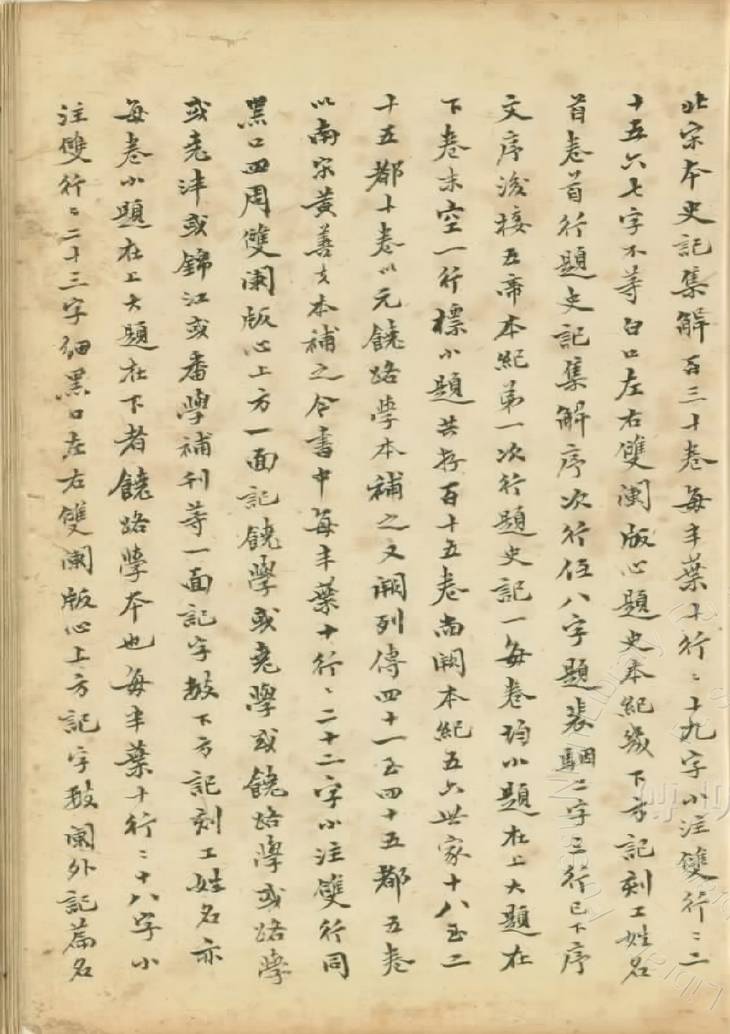 北宋本史記集解百三十卷每半葉十行〻十九字小注雙行〻二
十五六七字不等白口左右雙闌版心題史本紀幾下方記刻工姓名
首卷首行題史記集解序次行低八字題裴駰二字三行已下序
文序後接五帝本紀第一次行題史記一每卷均小題在上大題在
下卷末空一行標小題共存百十五卷尚闕本紀五六世家十八至二
十五都十卷以元饒路學本補之又闕列傳四十一至四十五都五卷
以南宋黃善夫本補之今書中每半葉十行〻二十二字小注雙行同
黑口四周雙闌版心上方一面記饒學或堯學或饒路學或路學
或堯泮或錦江或番學補刊等一面記字數下方記刻工姓名亦
每卷小題在上大題在下者饒路學本也每半葉十行〻十八字小
注雙行〻二十三字細黑口左右雙闌版心上方記字數闌外記篇名